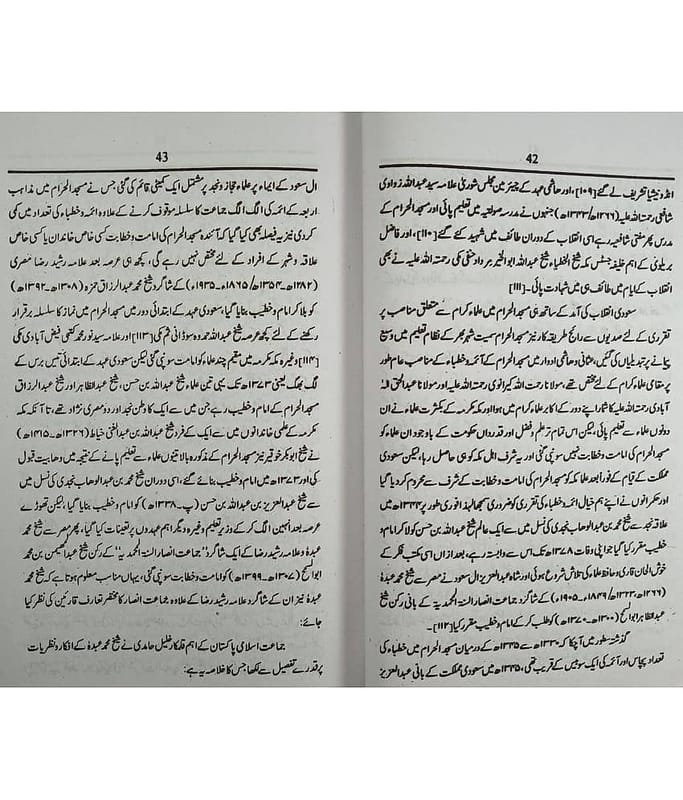 42
انڈونیشیا تشریف لے گئے [۱۰۹]، اور ہاشمی عہد کے چیئرمین مجلس شوریٰ علامہ سید عبداللہ زواوی
شافعی رحمۃ اللہ علیہ (۱۲۶۶ھ/۱۳۴۳ھ) جنہوں نے مدرسہ صولتیہ میں تعلیم پائی اور مسجد الحرام کے
مدرس پھر مفتی شافعیہ رہے اسی انقلاب کے دوران طائف میں شہید کئے گئے [۱۱۰]، اور فاضل
بریلوی کے اہم خلیفہ جسٹس مکہ شیخ الخطباء شیخ عبداللہ ابوالخیر مرداد حنفی مکی رحمۃ اللہ علیہ نے بھی
انقلاب کے ایام میں طائف ہی میں شہادت پائی۔ [۱۱۱]
سعودی انقلاب کی آمد کے ساتھ ہی مسجد الحرام میں علماء کرام سے متعلق مناصب پر
تقرری کے لئے صدیوں سے رائج طریقہ کار نیز مسجد الحرام سمیت شہر بھر کے نظام تعلیم میں وسیع
پیمانے پر تبدیلیاں کی گئیں، عثمانی و ہاشمی ادوار میں مسجد الحرام کے آئمہ و خطباء کے مناصب عام طور
پر مقامی علماء کرام کے لئے مختص تھے، مولانا رحمت اللہ کیرانوی رحمۃ اللہ علیہ اور مولانا عبدالحق الہ
آبادی رحمۃ اللہ علیہ کا شمار اپنے دور کے اکابر علماء کرام میں ہوا اور مکہ مکرمہ کے بکثرت علماء نے ان
دونوں علماء سے تعلیم پائی، لیکن اس تمام تر علم و فضل اور قدردانی حکومت کے باوجود ان علماء کو
مسجد الحرام کی امامت و خطابت نہیں سونپی گئی اور یہ شرف اہل مکہ کو ہی حاصل رہا، لیکن سعودی
مملکت کے قیام کے فوراً بعد علماء مکہ کو مسجد الحرام کی امامت و خطابت کے شرف سے محروم کر دیا گیا
اور حکمرانوں نے اپنے ہم خیال ائمہ و خطباء کی تقرری کو ضروری سمجھا لہٰذا فوری طور پر ۱۳۴۴ھ میں
علاقہ نجد سے شیخ محمد بن عبدالوہاب نجدی کی نسل میں سے ایک عالم شیخ عبداللہ بن حسن کو لا کر امام و
خطیب مقرر کیا گیا جو اپنی وفات ۱۳۷۸ھ تک اس سے وابستہ رہے، بعد ازاں اسی مکتب فکر کے
خوش الحان قاری و حافظ علماء کی تلاش شروع ہوئی اور شاہ عبدالعزیز ال سعود نے مصر سے شیخ محمد عبدہٗ
(۱۲۶۶ھ-۱۳۲۳ھ/۱۸۴۹ء-۱۹۰۵ء) کے شاگرد جماعت انصار السنۃ المحمدیہ کے بانی رکن شیخ
عبدالظاہر ابوالسمح (۱۳۰۰ھ-۱۳۷۰ھ) کو طلب کر کے امام و خطیب مقرر کیا [۱۱۲]۔
گذشتہ سطور میں آ چکا کہ ۱۳۰۰ھ سے ۱۳۳۵ھ کے درمیان مسجد الحرام میں خطباء کی
تعداد پچاس اور آئمہ کی ایک سو بیس کے قریب تھی، ۱۳۴۵ھ میں سعودی مملکت کے بانی عبدالعزیز
43
ال سعود کے ایماء پر علماء حجاز و نجد پر مشتمل ایک کمیٹی قائم کی گئی جس نے مسجد الحرام میں مذاہب
اربعہ کے ائمہ کی الگ الگ جماعت کا سلسلہ موقوف کرنے کے علاوہ ائمہ و خطباء کی تعداد میں کمی
کر دی نیز یہ فیصلہ بھی کیا گیا کہ آئندہ مسجد الحرام کی امامت و خطابت کسی خاص خاندان یا کسی خاص
علاقہ و شہر کے افراد کے لئے مختص نہیں رہے گی، کچھ ہی عرصہ بعد علامہ رشید رضا مصری
(۱۲۸۲ھ-۱۳۵۴ھ/۱۸۶۵ء-۱۹۳۵ء) کے شاگرد شیخ محمد عبدالرزاق حمزہ (۱۳۰۸ھ-۱۳۹۲ھ)
کو بلا کر امام و خطیب بنایا گیا، سعودی عہد کے ابتدائی دور میں مسجد الحرام میں نماز کا سلسلہ برقرار
رکھنے کے لئے کچھ عرصہ شیخ عبداللہ حمدوہ سوڈانی ثم مکی [۱۱۳] اور علامہ سید نور محمد کتھی فیض آبادی مکی
[۱۱۴] وغیرہ مکہ مکرمہ میں مقیم چند علماء کو امامت سونپی گئی لیکن سعودی عہد کے ابتدائی تیس برس کے
لگ بھگ یعنی ۱۳۷۳ھ تک یہی تین علماء شیخ عبداللہ بن حسن، شیخ عبدالظاہر اور شیخ عبدالرزاق
مسجد الحرام کے امام و خطیب رہے جن میں سے ایک کا وطن نجد اور دو مصری نژاد تھے، تا آنکہ مکہ
مکرمہ کے علمی خاندانوں میں سے ایک کے فرد شیخ عبداللہ بن عبدالغنی خیاط (۱۳۲۶ھ-۱۴۱۵ھ)
نے شیخ ابوبکر خوقیر نیز مسجد الحرام کے مذکورہ بالا تینوں علماء سے تعلیم پانے کے نتیجہ میں وہابیت قبول
کی اور ۱۳۷۳ھ میں امام و خطیب بنائے گئے، اسی دوران شیخ محمد بن عبدالوہاب نجدی کی نسل میں
سے شیخ عبدالعزیز بن عبداللہ بن حسن (پ-۱۳۳۸ھ) کو امام و خطیب بنایا گیا، لیکن تھوڑے
عرصہ بعد انہیں الگ کر کے وزیر تعلیم وغیرہ دیگر اہم عہدوں پر تعینات کیا گیا، پھر مصر سے شیخ محمد
عبدہٗ و علامہ رشید رضا کے ایک شاگرد "جماعت انصار السنۃ المحمدیہ" کے رکن شیخ عبدالمہیمن بن محمد
ابوالسمح (۱۳۰۷ھ-۱۳۹۹ھ) کو امامت و خطابت سونپی گئی، یہاں مناسب معلوم ہوتا ہے کہ شیخ محمد
عبدہٗ نیز ان کے شاگرد علامہ رشید رضا کے علاوہ جماعت انصار کا مختصر تعارف قارئین کی نظر کیا
جائے:
جماعت اسلامی پاکستان کے اہم قلمکار خلیل حامدی نے شیخ محمد عبدہٗ کے افکار و نظریات
پر قدرے تفصیل سے لکھا جس کا خلاصہ یہ ہے: